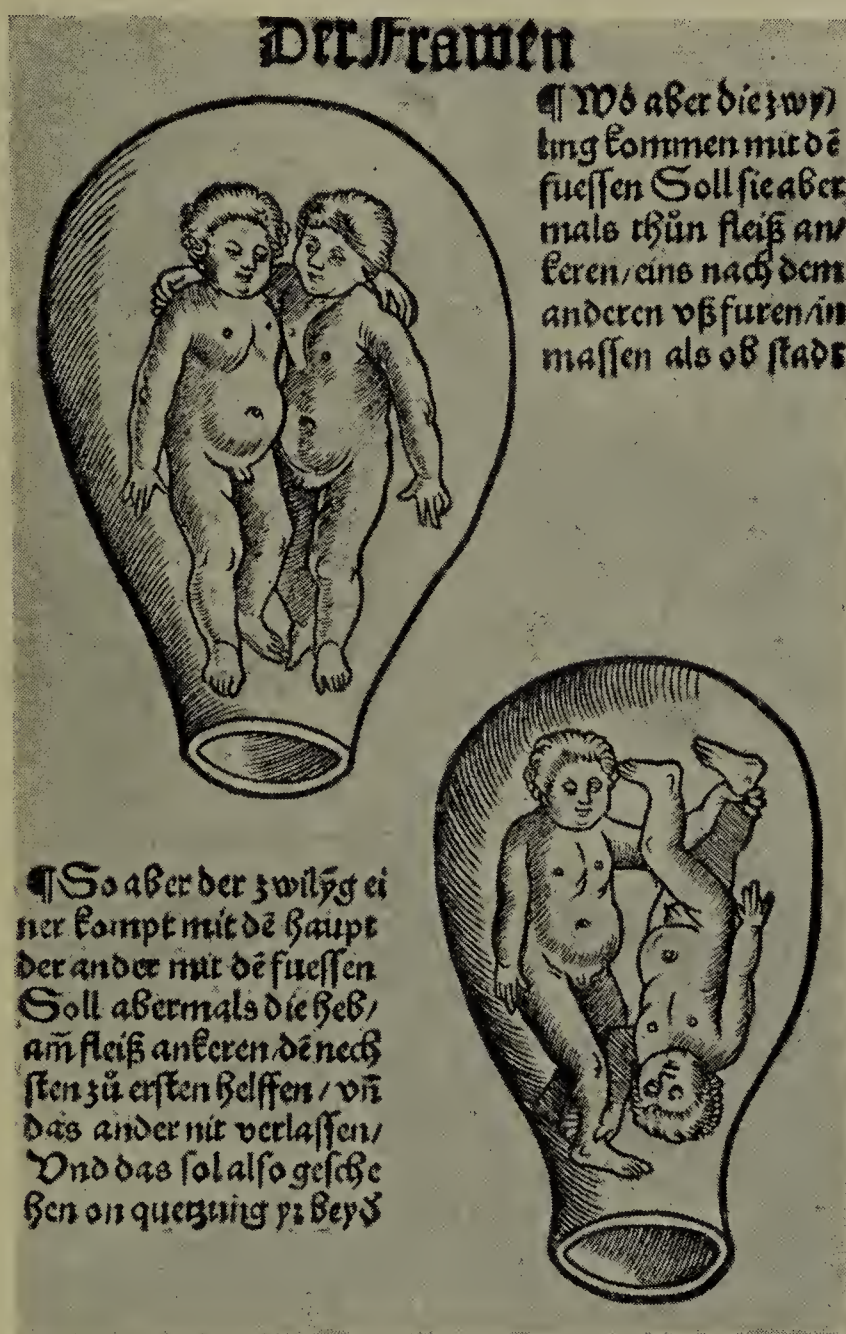 Der Frawen
¶ Wo aber die zwy/
ling kommen mit dē
fuessen Soll sie aber
mals thůn fleiß an/
keren/eins nach dem
anderen vß furen/in
massen als ob stadt
¶ So aber der zwilȳg ei
ner kompt mit dē haupt
der ander mit dē fuessen
Soll abermals die heb/
am̄ fleiß ankeren/dē nech
sten zů ersten helffen / vn̄
das ander nit verlassen/
Vnd das sol also gesche
hen on quetzung